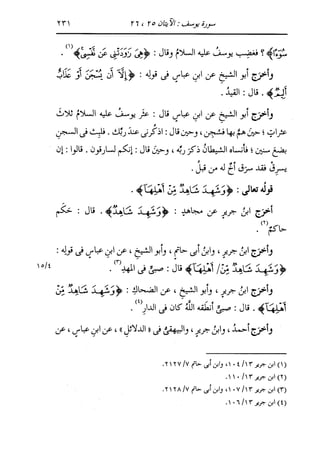 سورة يوسف : الآيتان ٢٥ ، ٢٦ ٢٣١
سُوٓءًا﴾ ؟ فغضِب يوسفُ عليه السلامُ وقال : ﴿هِىَ رَٰوَدَتْنِى عَن نَّفْسِى﴾(١) .
وأخرَج أبو الشيخِ عن ابنِ عباسٍ فى قولِه : ﴿إِلَّآ أَن يُسْجَنَ أَوْ عَذَابٌ
أَلِيمٌ﴾ . قال : القيدُ .
وأخرَج أبو الشيخِ عن ابنِ عباسٍ قال : عثَر يوسفُ عليه السلامُ ثلاثَ
عثراتٍ ؛ حينَ همَّ بها فسُجِن ، وحينَ قال : اذكُرْنى عندَ ربِّك . فلبِث فى السجنِ
بضعَ سنينَ ؛ فأنساه الشيطانُ ذكرَ ربِّه ، وحينَ قال : إنكم لسارقون . قالوا : إن
يسرِقْ فقد سرَق أخٌ له من قبلُ .
قولُه تعالى : ﴿وَشَهِدَ شَاهِدٌ مِّنْ أَهْلِهَآ﴾ .
أخرَج ابنُ جريرٍ عن مجاهدٍ : ﴿وَشَهِدَ شَاهِدٌ﴾ . قال : حكَم
حاكمٌ(٢) .
وأخرَج ابنُ جريرٍ ، وابنُ أبى حاتمٍ ، وأبو الشيخِ ، عن ابنِ عباسٍ فى قولِه :
﴿وَشَهِدَ شَاهِدٌ مِّنْ/ أَهْلِهَآ﴾ قال : صبىٌّ فى المهدِ(٣) . ١٥/٤
وأخرَج ابنُ جريرٍ ، وأبو الشيخِ ، عن الضحاكِ : ﴿وَشَهِدَ شَاهِدٌ مِّنْ
أَهْلِهَآ﴾ . قال : صبىٌّ أنطَقه اللَّهُ كان فى الدارِ(٤) .
وأخرَج أحمدُ ، وابنُ جريرٍ ، والبيهقىُّ فى « الدلائلِ » ، عن ابنِ عباسٍ ، عن
(١) ابن جرير ١٣/ ١٠٤، وابن أبى حاتم ٧/ ٢١٢٧.
(٢) ابن جرير ١٣/ ١١٠.
(٣) ابن جرير ١٣/ ١٠٧، وابن أبى حاتم ٧/ ٢١٢٨.
(٤) ابن جرير ١٣/ ١٠٦.